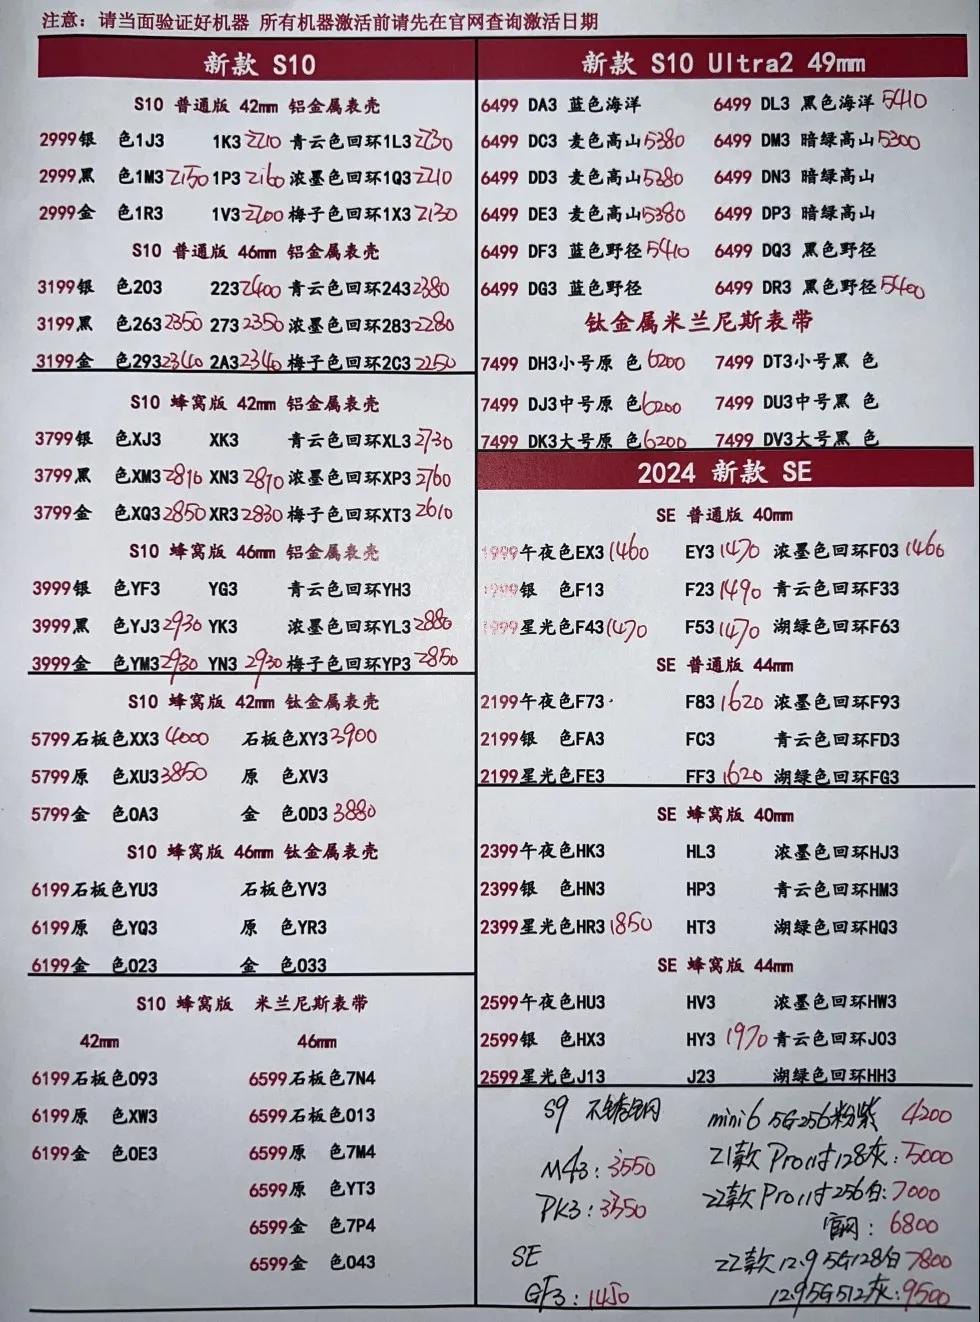 注意：请当面验证好机器 所有机器激活前请先在官网查询激活日期
新款 S10
S10 普通版 42mm 铝金属表壳
2999银 色1J3 1K3 2210 青云色回环1L3 2230
2999黑 色1M3 2150 1P3 2160 浓墨色回环1Q3 2210
2999金 色1R3 1V3 2200 梅子色回环1X3 2130
S10 普通版 46mm 铝金属表壳
3199银 色203 223 2400 青云色回环243 2380
3199黑 色263 2350 273 2350 浓墨色回环283 2280
3199金 色293 2340 2A3 2340 梅子色回环2C3 2250
S10 蜂窝版 42mm 铝金属表壳
3799银 色XJ3 XK3 青云色回环XL3 2730
3799黑 色XM3 2810 XN3 2810 浓墨色回环XP3 2760
3799金 色XQ3 2850 XR3 2830 梅子色回环XT3 2610
S10 蜂窝版 46mm 铝金属表壳
3999银 色YF3 YG3 青云色回环YH3
3999黑 色YJ3 2930 YK3 浓墨色回环YL3 2880
3999金 色YM3 2930 YN3 2930 梅子色回环YP3 2850
S10 蜂窝版 42mm 钛金属表壳
5799石板色XX3 4000 石板色XY3 3900
5799原 色XU3 3850 原 色XV3
5799金 色0A3 金 色0D3 3880
S10 蜂窝版 46mm 钛金属表壳
6199石板色YU3 石板色YV3
6199原 色YQ3 原 色YR3
6199金 色023 金 色033
S10 蜂窝版 米兰尼斯表带
42mm 46mm
6199石板色093 6599石板色7N4
6199原 色XW3 6599石板色013
6199金 色0E3 6599原 色7M4
6599原 色YT3
6599金 色7P4
6599金 色043
新款 S10 Ultra2 49mm
6499 DA3 蓝色海洋 6499 DL3 黑色海洋 5410
6499 DC3 麦色高山 5380 6499 DM3 暗绿高山 5300
6499 DD3 麦色高山 5380 6499 DN3 暗绿高山
6499 DE3 麦色高山 5380 6499 DP3 暗绿高山
6499 DF3 蓝色野径 5410 6499 DQ3 黑色野径
6499 DG3 蓝色野径 6499 DR3 黑色野径 5400
钛金属米兰尼斯表带
7499 DH3小号原 色 6200 7499 DT3小号黑 色
7499 DJ3中号原 色 6200 7499 DU3中号黑 色
7499 DK3大号原 色 6200 7499 DV3大号黑 色
2024 新款 SE
SE 普通版 40mm
1999午夜色EX3 1460 EY3 1470 浓墨色回环F03 1460
1999银 色F13 F23 1490 青云色回环F33
1999星光色F43 1470 F53 1470 湖绿色回环F63
SE 普通版 44mm
2199午夜色F73 F83 1620 浓墨色回环F93
2199银 色FA3 FC3 青云色回环FD3
2199星光色FE3 FF3 1620 湖绿色回环FG3
SE 蜂窝版 40mm
2399午夜色HK3 HL3 浓墨色回环HJ3
2399银 色HN3 HP3 青云色回环HM3
2399星光色HR3 1850 HT3 湖绿色回环HQ3
SE 蜂窝版 44mm
2599午夜色HU3 HV3 浓墨色回环HW3
2599银 色HX3 HY3 1970 青云色回环J03
2599星光色J13 J23 湖绿色回环HH3
S9 不锈钢
M43：3550
PK3：3550
SE
GF3：1450
mini6 5G256粉紫 4200
21款 Pro11寸128灰：5000
22款 Pro11寸256白：7000
官网：6800
22款 12.9 5G128白 7800
12.9 5G512灰：9500